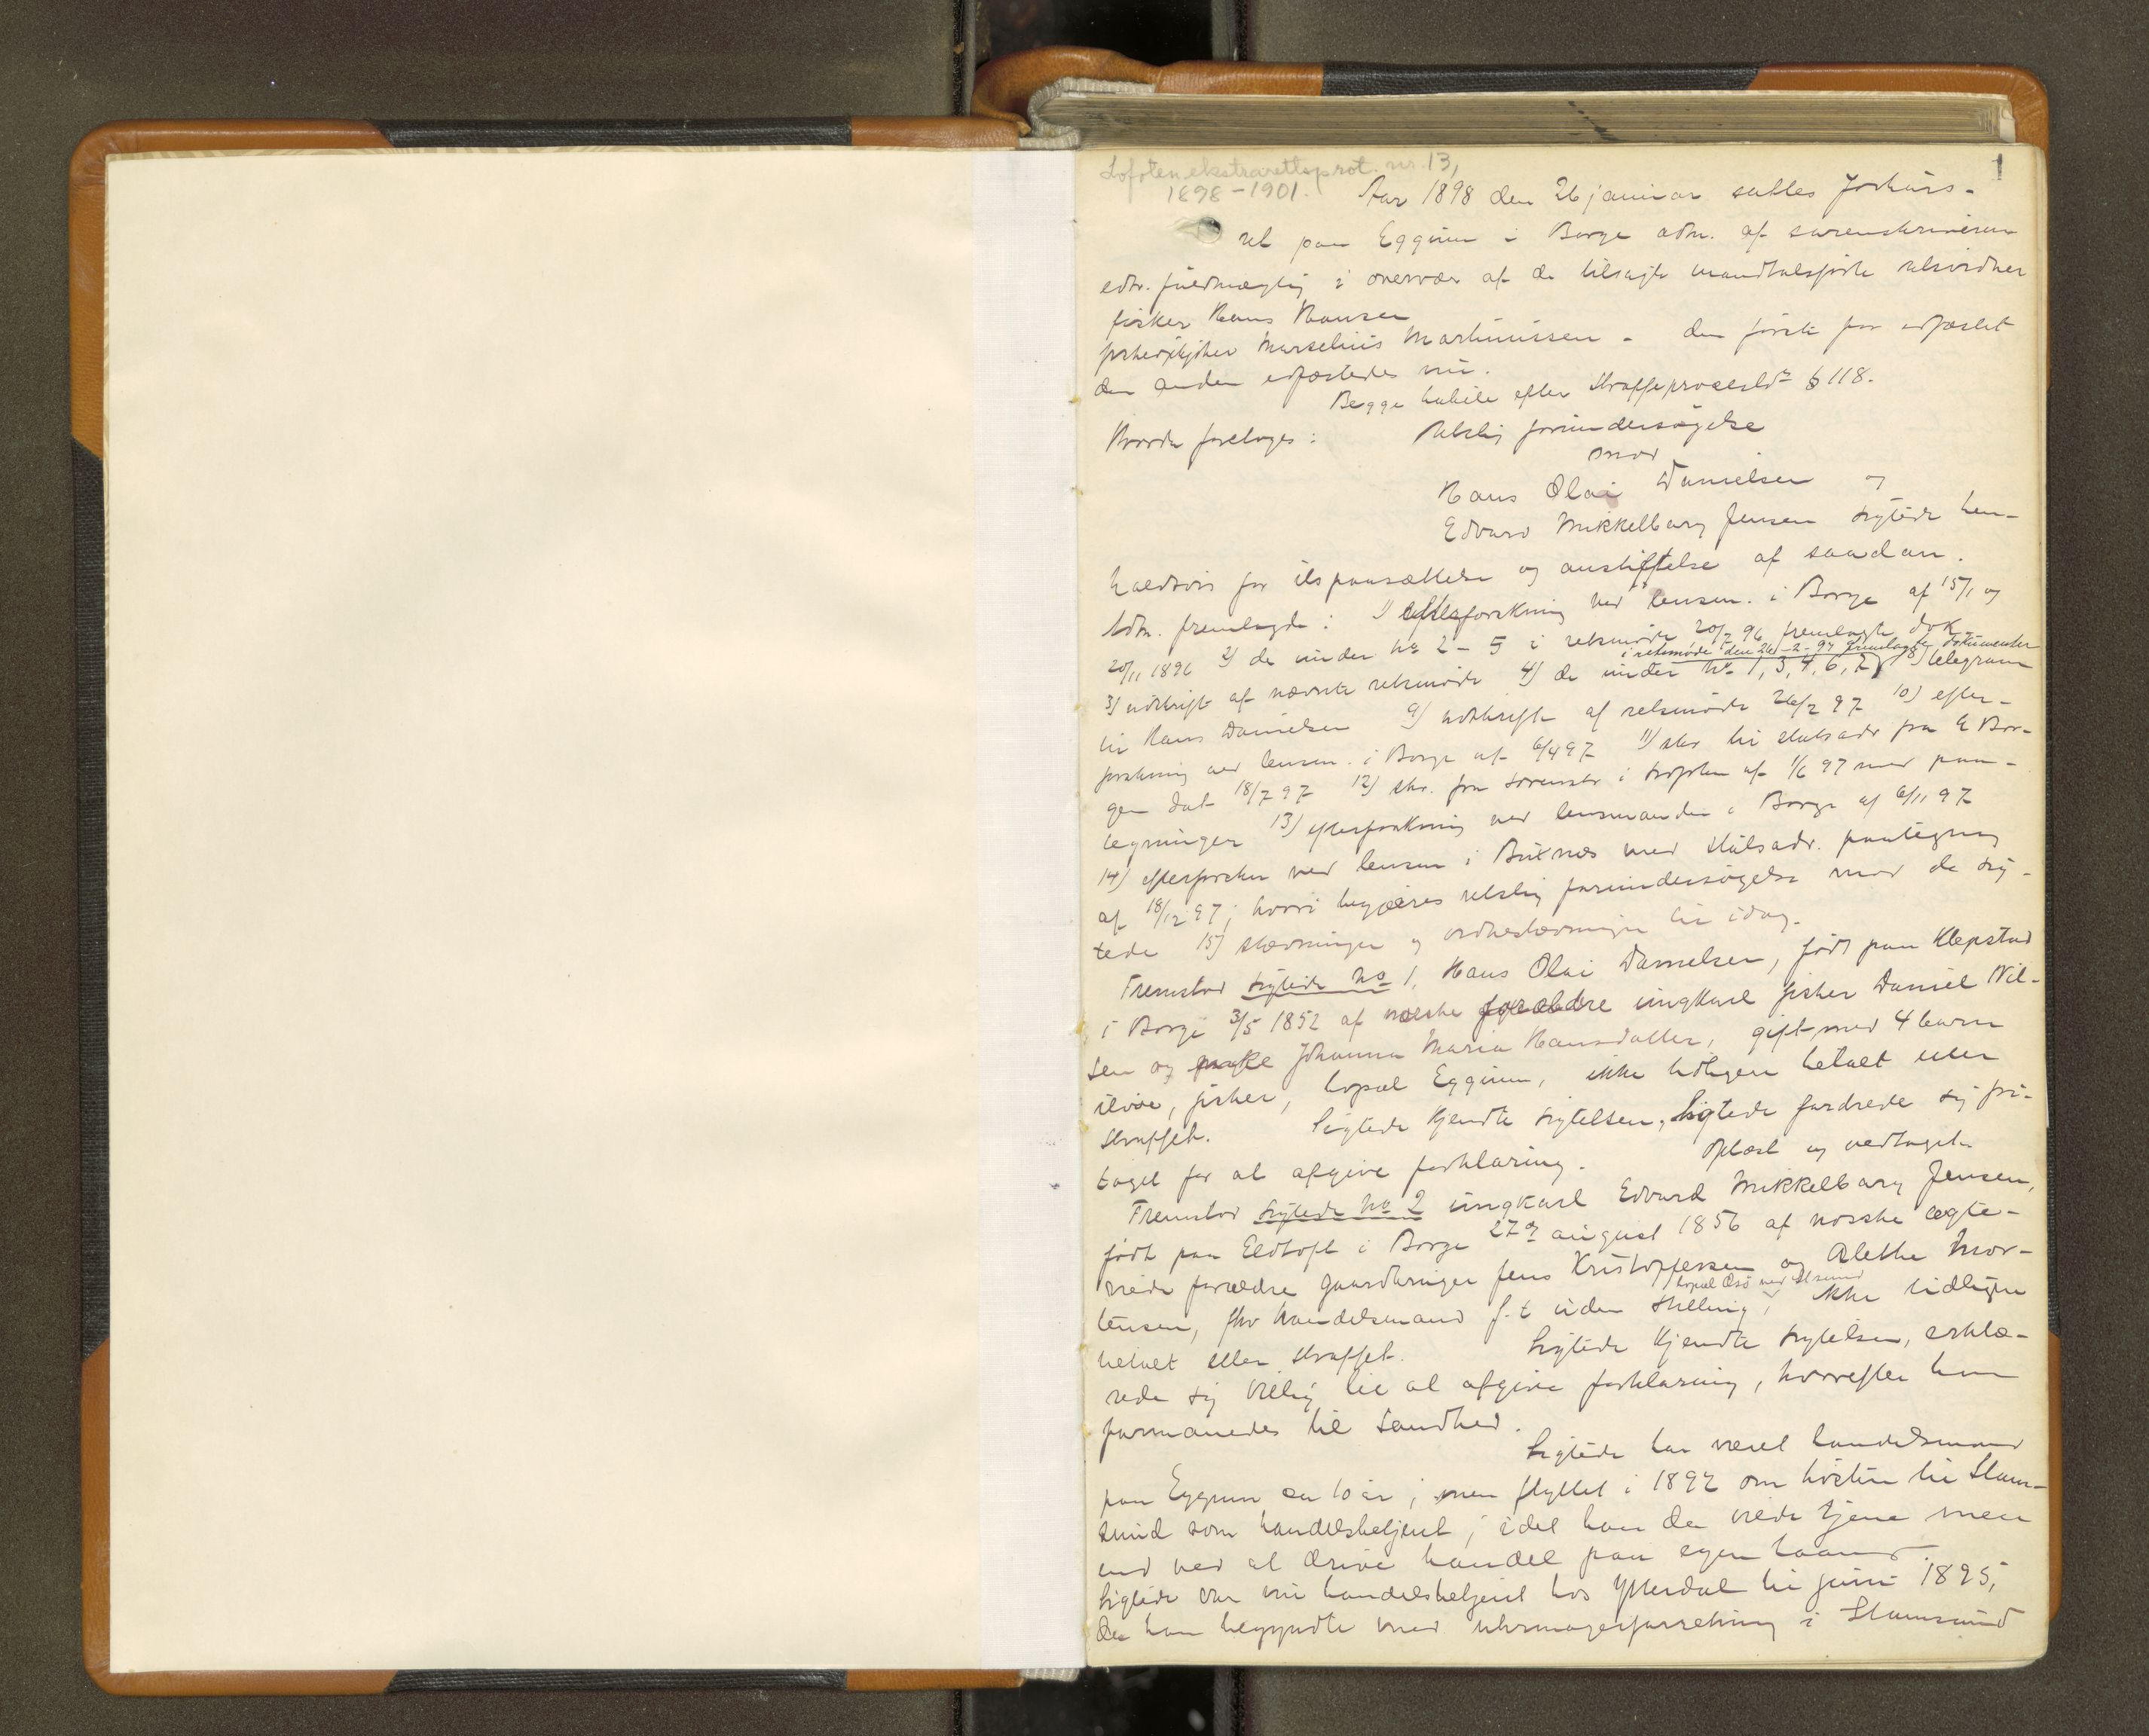 Lofoten ekstrarettsprot. nr. 13,
1
1898-1901.
Aar 1898 den 26 januar sattes forhörs-
ret paa Eggum i Borge adm. af sorenskriveren
edsv. fuldmægtig i overvær af de tilsagte mandtalsførte retsvidner
fisker Hans Hansen
Marselius Martinussen - den første før edfæstet
den anden edfæstedes nu.
Begge habile efter Straffeproceslov § 118.
Hvorda foretoges: Retslig forundersøgelse
mod
Hans Olai Danielsen og
Edvard Mikkelborg Jensen sigtede hen-
holdsvis for ildspaasættelse og anstiftelse af saadan.
Adm. fremlagde: 1) efterforskning ved lensm. i Borge af 15/1 og
20/11 1896 2) de under No 2-5 i retsmøde 20/7 96 fremlagte dok
i retsmøde den 26-2-97 fremlagte dokumenter
3) udskrift af nævnte retsmøde 4) de under No 1, 3, 4, 6, 7 8) telegram
til Hans Danielsen 9) udskrift af retsmøde 26/2 97 10) efter-
forskning ved lensm. i Borge af 6/4 97 11) skr til statsadv fra E Bor-
gen dat 18/7 97 12) skr. fra sorenskr i Lofoten af 1/6 97 med paa-
tegninger 13) efterforskning ved lensmanden i Borge af 6/11 97
14) efterforskn ved lensm i Buxnæs med statsadv. paategning
af 18/12 97; hvori begjæres retslig forundersøgelse mod de sig-
tede 15) stævninger og vidnestævninger til idag.
Fremstod sigtede No 1, Hans Olai Danielsen, født paa Klepstad
i Borge 3/5 1852 af norske forældre ungkarl fisker Daniel Nil-
sen og pike Johanna Maria Hansdatter, gift med 4 barn
ilive, fisker, bopæl Eggum, ikke tidligere tiltalt eller
straffet. Sigtede kjendte sigtelsen, Sigtede fordrede sig fri-
taget for at afgive forklaring. Oplæst og vedtaget.
Fremstod sigtede No 2 ungkarl Edvard Mikkelborg Jensen,
født paa Eltoft i Borge 27de august 1856 af norske ægte-
viede forældre gaardbruger Jens Kristoffersen og Alethe Mor-
bopæl
tensen, fhv handelsmand f.t uden stilling, ikke tidligere
tiltalt eller straffet. Sigtede kjendte sigtelsen, erklæ-
rede sig villig til at afgive forklaring, hvorefter han
formanedes til Sandhed.
Sigtede har været handelsmand
paa Eggum ca 10 år, men flyttet i 1892 om høsten til Stam-
sund som handelsbetjent, idet han da vilde tjene mere
end ved at drive handel paa egen haand.
Sigtede var nu handelsbetjent hos Ytterdal til juni 1895,
da han begyndte med uhrmagerforretning i Stamsund